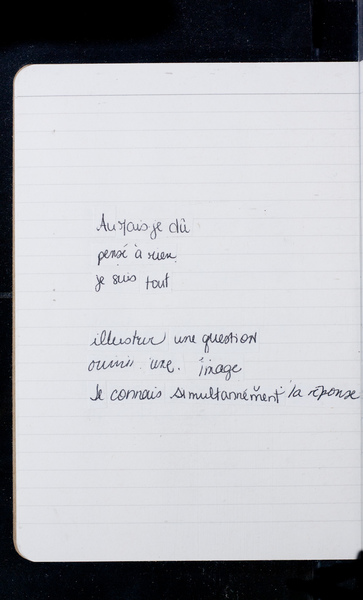 Aurais je dû
pensé à rien
je suis tout
illustrer une question
ouvrir une image
Je connais simultannément la réponse